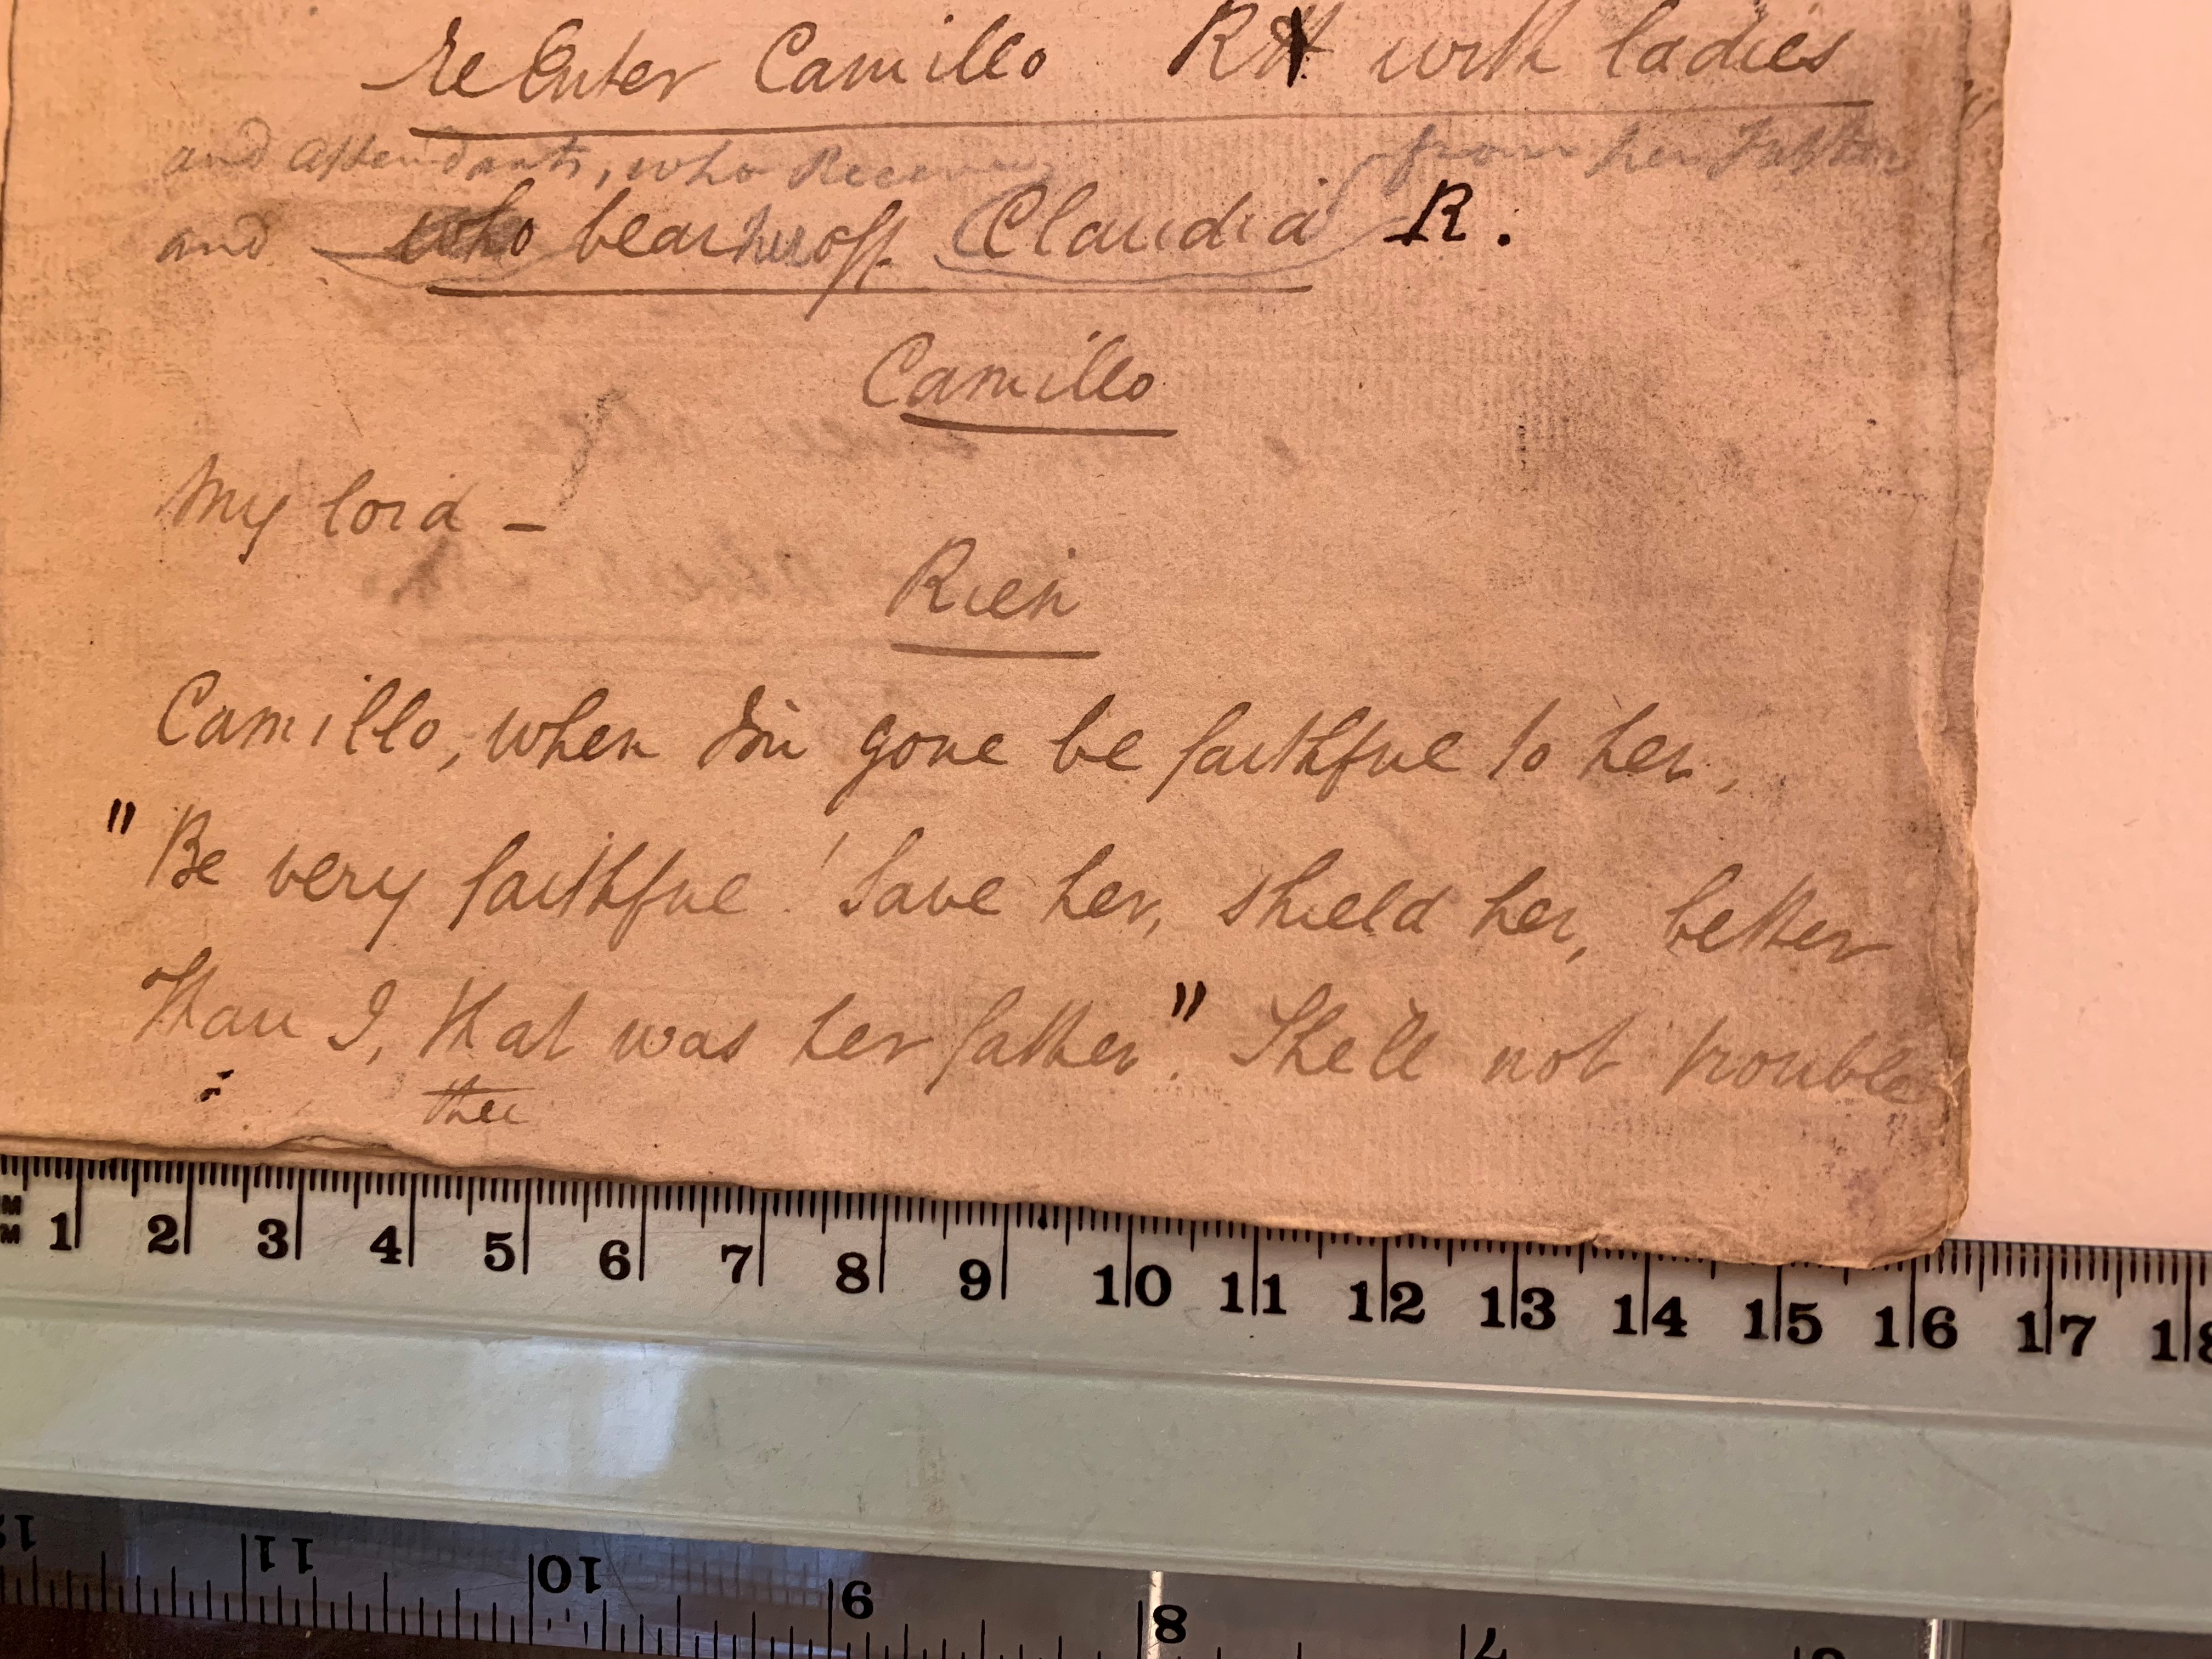 ReEnter Camillo R with ladies
and attendants, who Receive from her Father
and who bear her off Claudia R.
Camillo
My lord –
Rien
Camillo, when I'm gone be faithful to her,
" Be very faithful! Save her, shield her, better
Than I, that was her father." She'll not trouble
thee
M
M 1 2 3 4 5 6 7 8 9 10 11 12 13 14 15 16 17 18
12 11 10 9 8 7 6